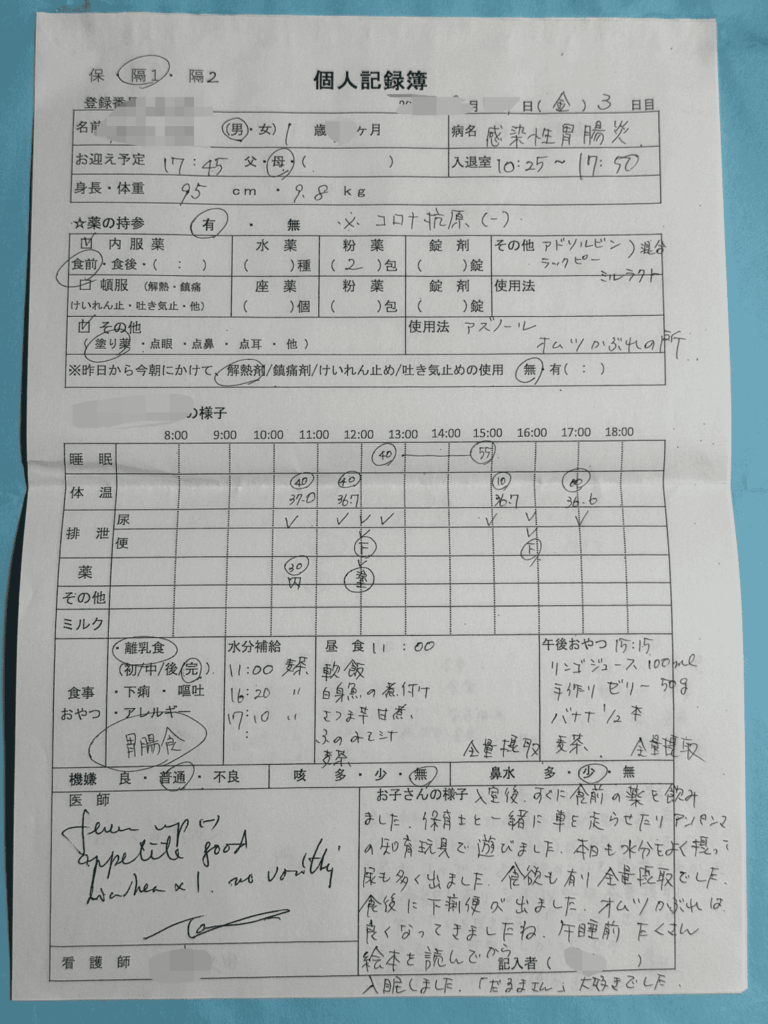 保 ・ 隔1 ・ 隔2
個人記録簿
登録番号
月 日(金) 3 日目
名前 (男・女) 1 歳 ヶ月 病名 感染性胃腸炎
お迎え予定 17:45 父・母・( ) 入退室 10:25 ~ 17:50
身長・体重 95 cm ・ 9.8 kg
☆薬の持参 有 ・ 無 ※ コロナ抗原 (-)
内服薬 水薬 粉薬 錠剤 その他 アドソルビン 混合
食前・食後・( : ) ( )種 ( 2 )包 ( )錠 ラックビー
ミルラクト
頓服 (解熱・鎮痛 座薬 粉薬 錠剤 使用法
けいれん止・吐き気止・他) ( )個 ( )包 ( )錠
その他 使用法 アズノール
(塗り薬・点眼・点鼻・点耳・他) オムツかぶれの所
※昨日から今朝にかけて、解熱剤/鎮痛剤/けいれん止め/吐き気止めの使用 無・有( : )
の様子
8:00 9:00 10:00 11:00 12:00 13:00 14:00 15:00 16:00 17:00 18:00
睡眠 40 55
体温 40 40 10 00
37.0 36.7 36.7 36.6
排泄 尿 ✓ ✓ ✓ ✓ ✓ ✓ ✓
便 下 下
薬 30 内 塗
その他
ミルク
食事
おやつ
・離乳食
(初/中/後/完)
・下痢・嘔吐
・アレルギー
胃腸食
水分補給
11:00 麦茶
16:20 〃
17:10 〃
:
昼食 11:00
軟飯
白身魚の煮付け
さつま芋甘煮
ふのみそ汁
麦茶 全量摂取
午後おやつ 15:15
リンゴジュース 100ml
手作りゼリー 50g
バナナ 1/2 本
麦茶 全量摂取
機嫌 良・普通・不良 咳 多・少・無 鼻水 多・少・無
医師
fever up (-)
appetite good
diarrhea x 1. no vomiting
看護師
お子さんの様子 入室後、すぐに食前の薬を飲み
ました。保育士と一緒に車を走らせたりアンパンマ
の知育玩具で遊びました。本日も水分をよく摂って
尿も多く出ました。食欲も有り全量摂取でした。
食後に下痢便が出ました。オムツかぶれは
良くなってきましたね。午睡前 たくさん
絵本を読んでから 記入者( )
入眠しました。「だるまさん」大好きでした。